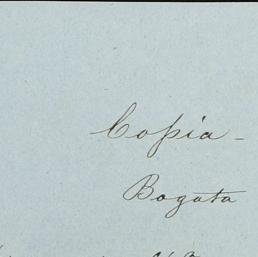 Copia -
Bogota